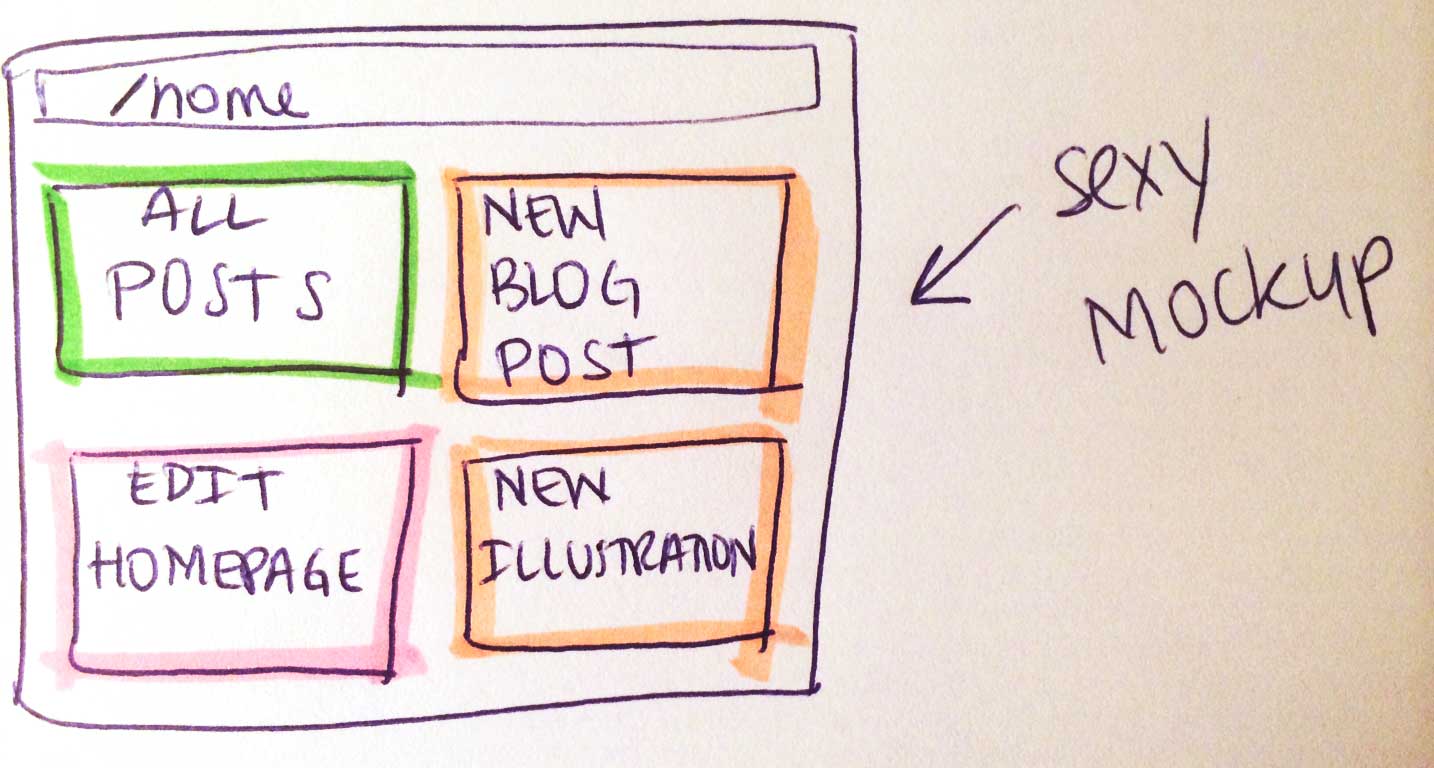 /home
ALL
POSTS
NEW
BLOG
POST
EDIT
HOMEPAGE
NEW
ILLUSTRATION
sexy
mockup